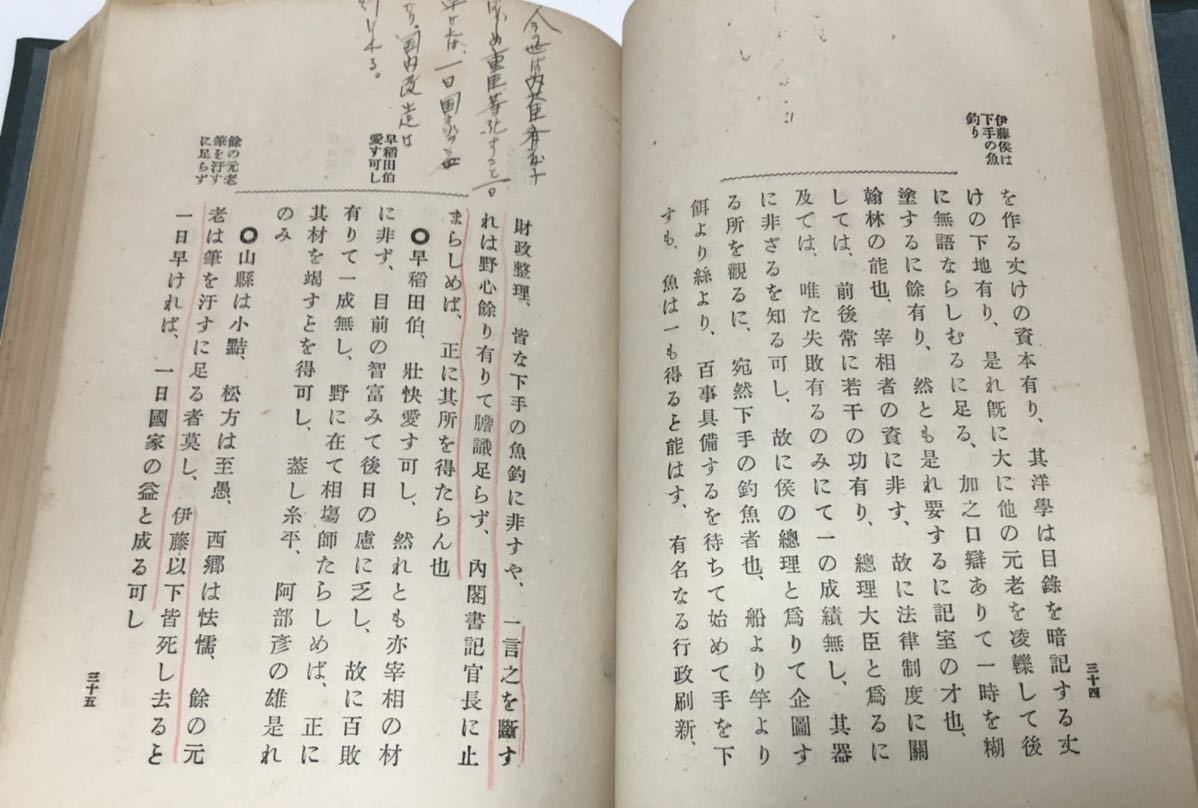 伊藤侯は
下手の魚
釣り
を作る丈けの資本有り、其洋學は目錄を暗記する丈
けの下地有り、是れ旣に大に他の元老を凌轢して後
に無語ならしむるに足る、加之口辯ありて一時を糊
塗するに餘有り、然とも是れ要するに記室の才也、
翰林の能也、宰相者の資に非す、故に法律制度に關
しては、前後常に若干の功有り、總理大臣と爲るに
及ては、唯た失敗有るのみにて一の成績無し、其器
に非ざるを知る可し、故に侯の總理と爲りて企圖す
る所を觀るに、宛然下手の釣魚者也、船より竿より
餌より絲より、百事具備するを待ちて始めて手を下
すも、魚は一も得ると能はす、有名なる行政刷新、
三十四
早稻田伯
愛す可し
餘の元老
筆を汙す
に足らず
財政整理、皆な下手の魚釣に非すや、一言之を斷す
れは野心餘り有りて膽識足らず、內閣書記官長に止
まらしめば、正に其所を得たらん也
○早稻田伯、壯快愛す可し、然れとも亦宰相の材
に非ず、目前の智富みて後日の慮に乏し、故に百敗
有りて一成無し、野に在て相塲師たらしめば、正に
其材を竭すとを得可し、蓋し糸平、阿部彥の雄是れ
のみ
○山縣は小黠、松方は至愚、西鄕は怯懦、餘の元
老は筆を汙すに足る者莫し、伊藤以下皆死し去ると
一日早ければ、一日國家の益と成る可し
三十五